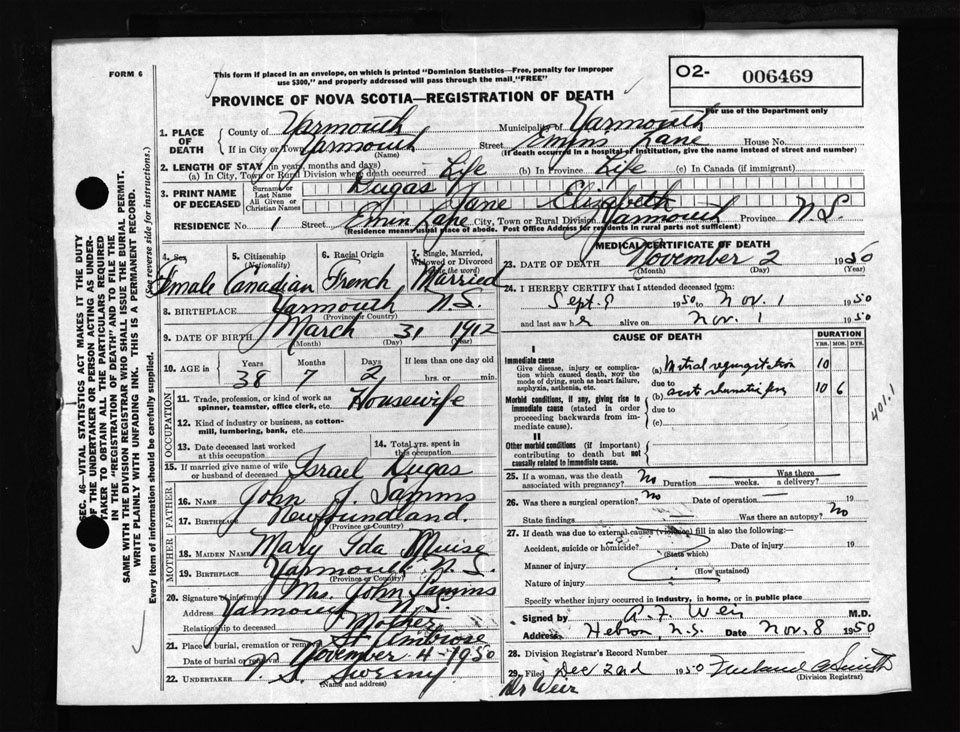 FORM 6
This form if placed in an envelope, on which is printed "Dominion Statistics—Free, penalty for improper
use $300," and properly addressed will pass through the mail "FREE"
O2- 006469
For use of the Department only
PROVINCE OF NOVA SCOTIA—REGISTRATION OF DEATH
1. PLACE OF DEATH
County of Yarmouth Municipality of Yarmouth
If in City or Town Yarmouth Street Emins Lane House No.
(Name) (If death occurred in a hospital or institution, give the name instead of street and number)
2. LENGTH OF STAY (in years, months and days)
(a) In City, Town or Rural Division where death occurred Life (b) In Province Life (c) In Canada (if immigrant)
3. PRINT NAME OF DECEASED
Surname or Last Name Dugas
All Given or Christian Names Jane Elizabeth
RESIDENCE No. 1 Street Emin Lane City, Town or Rural Division Yarmouth Province N.S.
(Residence means usual place of abode. Post Office Address for residents in rural parts not sufficient)
4. Sex Female
5. Citizenship (Nationality) Canadian
6. Racial Origin French
7. Single, Married, Widowed or Divorced (write the word) Married
8. BIRTHPLACE Yarmouth N.S.
(Province or Country)
9. DATE OF BIRTH March 31 1912
(Month) (Day) (Year)
10. AGE in Years 38 Months 7 Days 2
If less than one day old
hrs. or min.
OCCUPATION
11. Trade, profession, or kind of work as
spinner, teamster, office clerk, etc. Housewife
12. Kind of industry or business, as cotton-
mill, lumbering, bank, etc.
13. Date deceased last worked
at this occupation
14. Total yrs. spent in
this occupation
15. If married give name of wife
or husband of deceased Israel Dugas
FATHER
16. NAME John J. Samms
17. BIRTHPLACE Newfoundland.
(Province or Country)
MOTHER
18. MAIDEN NAME Mary Ida Muise
19. BIRTHPLACE Yarmouth N.S.
(Province or Country)
20. Signature of informant Mrs. John Samms
Address Yarmouth N.S.
Relationship to deceased Mother
21. Place of burial, cremation or removal St Ambrose
Date of burial or removal November 4-1950
22. UNDERTAKER V. S. Sweeny
(Name and address)
MEDICAL CERTIFICATE OF DEATH
23. DATE OF DEATH November 2 1950
(Month) (Day) (Year)
24. I HEREBY CERTIFY that I attended deceased from:
Sept. 9 1950 to Nov. 1 1950
and last saw her alive on Nov. 1 1950
CAUSE OF DEATH
DURATION
YRS. MOS. DYS.
I
Immediate cause
Give disease, injury or complica-
tion which caused death, not the
mode of dying, such as heart failure,
asphyxia, asthenia, etc.
(a) Mitral regurgitation 10
due to
Morbid conditions, if any, giving rise to
immediate cause (stated in order
proceeding backwards from im-
mediate cause).
(b) acute rheumatic fever 10 6
due to
(c)
401.1
II
Other morbid conditions (if important)
contributing to death but not
causally related to immediate cause.
25. If a woman, was the death
associated with pregnancy? No Duration weeks. Was there
a delivery?
26. Was there a surgical operation? No Date of operation 19
State findings Was there an autopsy? No
27. If death was due to external causes (violence) fill in also the following:—
Accident, suicide or homicide? Date of injury 19
(State which)
Manner of injury
(How sustained)
Nature of injury
Specify whether injury occurred in industry, in home, or in public place
Signed by A. F. Weir M.D.
Address Hebron, N.S. Date Nov. 8 1950
28. Division Registrar's Record Number
29. Filed Dec 2nd 1950
(Division Registrar)
Dr Weir
SEC. 46—VITAL STATISTICS ACT MAKES IT THE DUTY
OF THE UNDERTAKER OR PERSON ACTING AS UNDER-
TAKER TO OBTAIN ALL THE PARTICULARS REQUIRED
IN THE "REGISTRATION OF DEATH" AND TO FILE THE
SAME WITH THE DIVISION REGISTRAR WHO SHALL ISSUE THE BURIAL PERMIT.
WRITE PLAINLY WITH UNFADING INK. THIS IS A PERMANENT RECORD.
Every item of information should be carefully supplied. (See reverse side for instructions.)